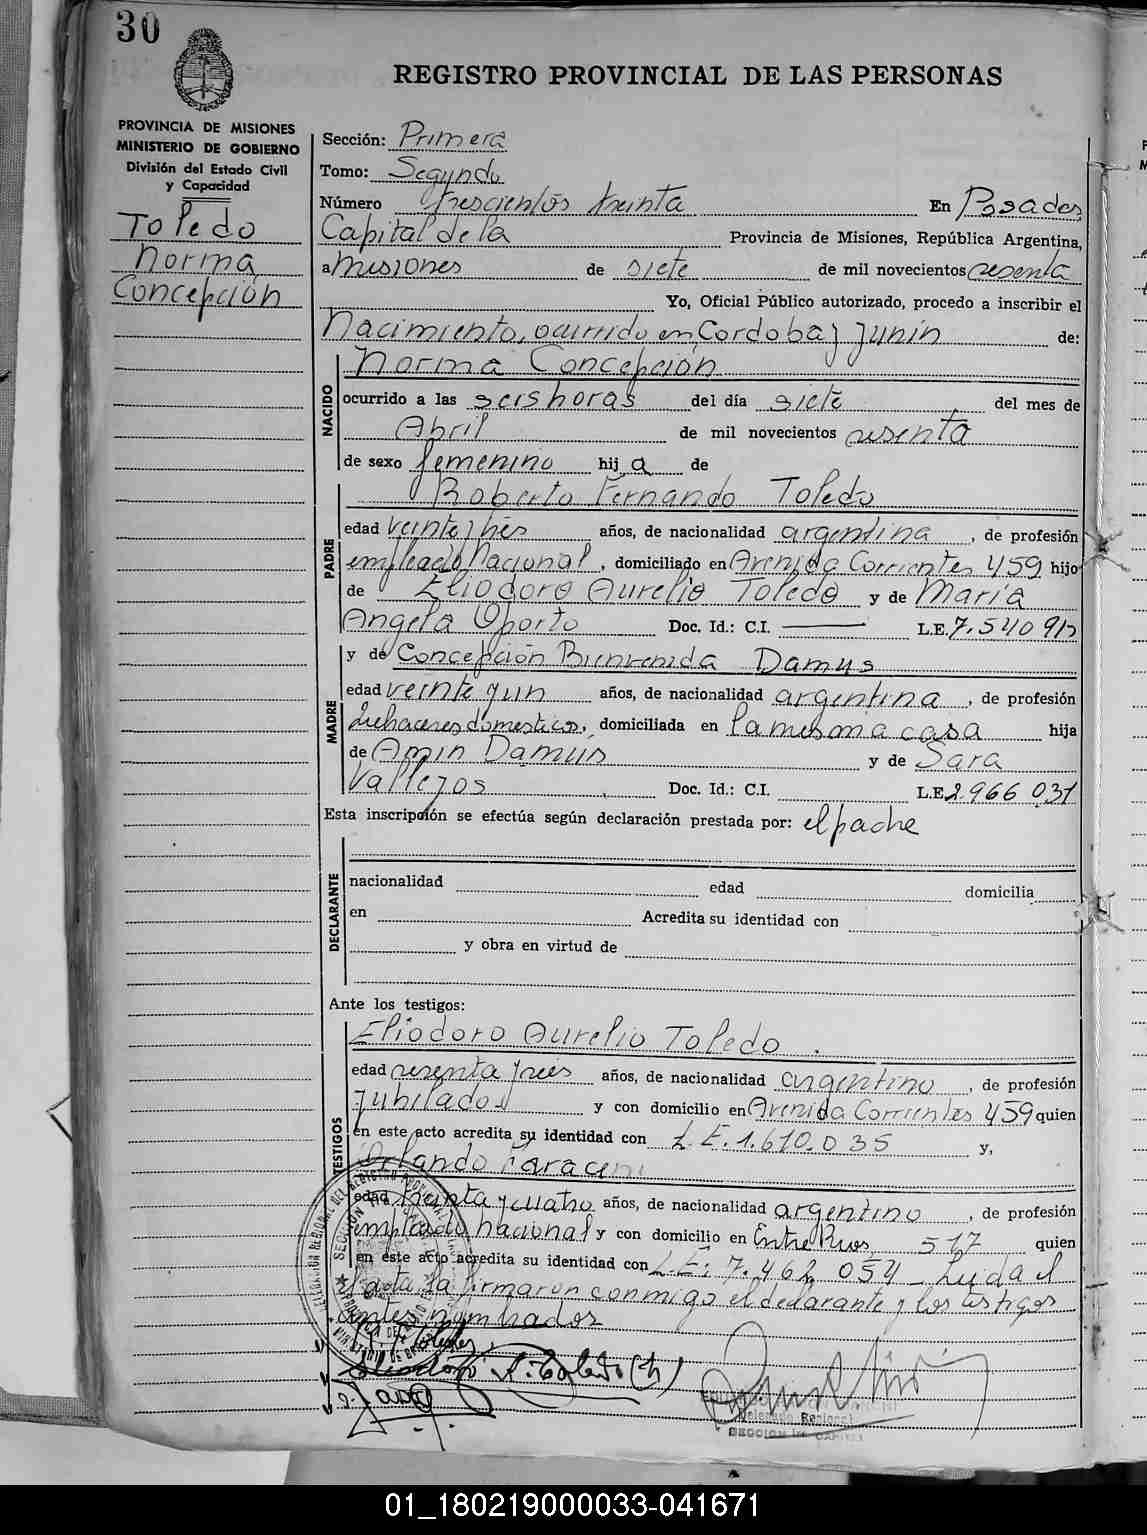 30
REGISTRO PROVINCIAL DE LAS PERSONAS
PROVINCIA DE MISIONES
MINISTERIO DE GOBIERNO
División del Estado Civil
y Capacidad
Toledo
Norma
Concepción
Sección: Primera
Tomo: Segundo
Número trescientos treinta En Posadas
Capital de la Provincia de Misiones, República Argentina,
a Misiones de siete de mil novecientos sesenta
Yo, Oficial Público autorizado, procedo a inscribir el
Nacimiento, ocurrido en Cordoba y Junin de:
NACIDO
Norma Concepción
ocurrido a las seis horas del día siete del mes de
Abril de mil novecientos sesenta
de sexo femenino hij a de
PADRE
Roberto Fernando Toledo
edad veinte tres años, de nacionalidad argentina, de profesión
empleado Nacional, domiciliado en Avenida Corrientes 459 hijo
de Eliodoro Aurelio Toledo y de Maria
Angela Oporto Doc. Id.: C.I. L.E. 7.540 912
MADRE
y de Concepción Bienvenida Damus
edad veinte y un años, de nacionalidad argentina, de profesión
quehaceres domesticos, domiciliada en la misma casa hija
de Amin Damus y de Sara
Vallejos Doc. Id.: C.I. L.E 2.966 031
Esta inscripción se efectúa según declaración prestada por: el padre
DECLARANTE
nacionalidad edad domicilia
en Acredita su identidad con
y obra en virtud de
Ante los testigos:
TESTIGOS
Eliodoro Aurelio Toledo.
edad sesenta y seis años, de nacionalidad argentino, de profesión
Jubilado y con domicilio en Avenida Corrientes 459 quien
en este acto acredita su identidad con L.E. 1.610.035 y,
Orlando
edad treinta y cuatro años, de nacionalidad argentino, de profesión
empleado nacional y con domicilio en Entre Rios 517 quien
en este acto acredita su identidad con L.E: 7.462 054 - Leida el
acta la firmaron conmigo el declarante y los testigos
antes nombrados
Delegado Regional
01_180219000033-041671